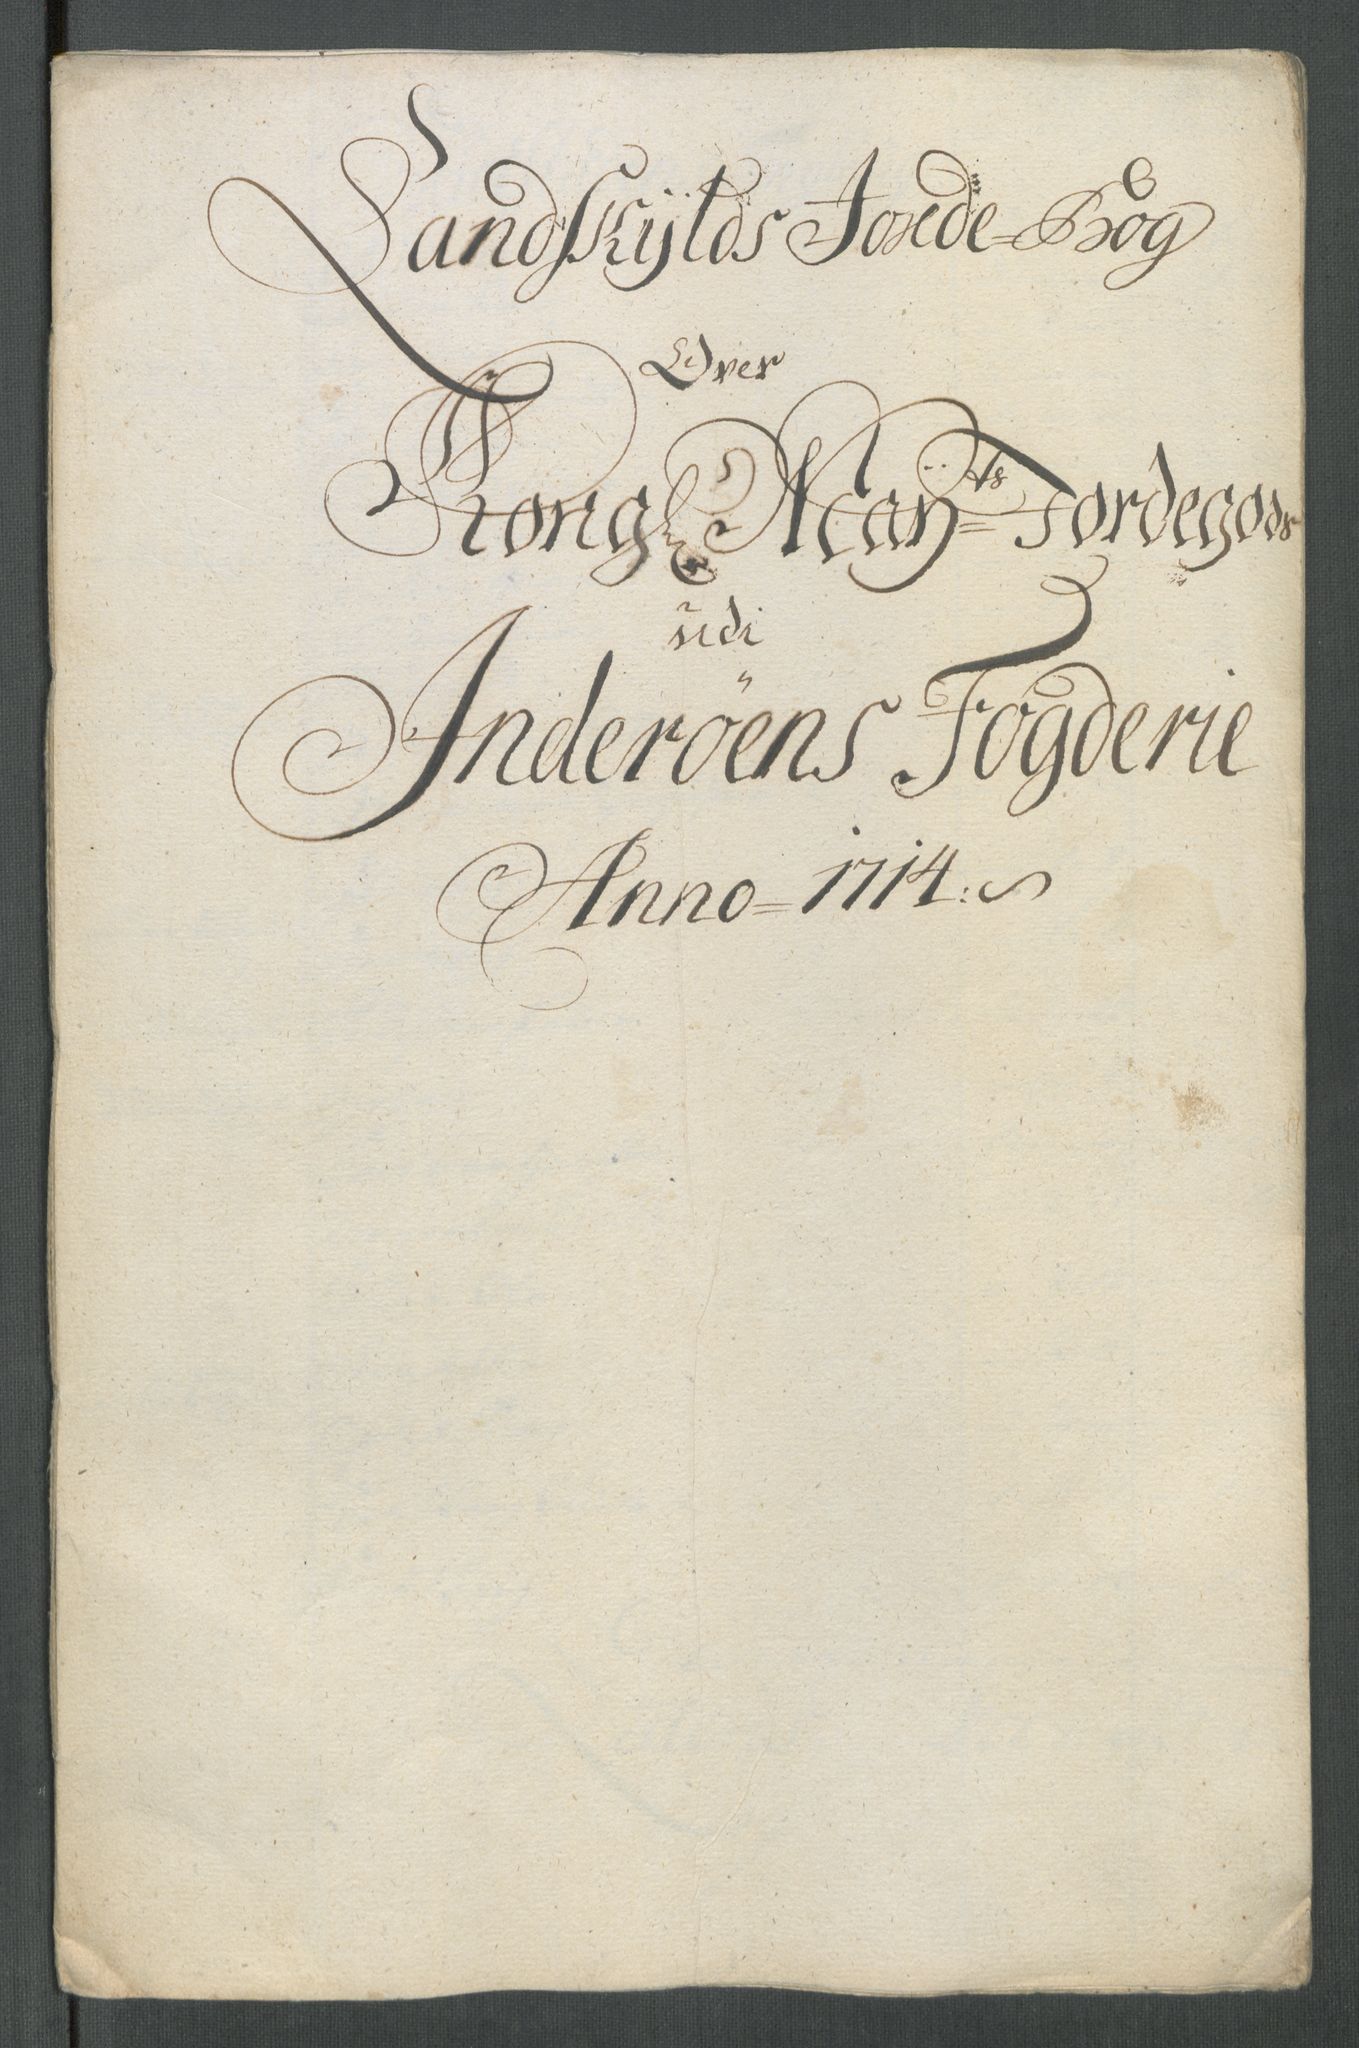 Landskÿlds Jorde-Bog
Over
Kongl Maÿ=ts Jordegods
udi
Inderöens Fogderie
Anno=1714: